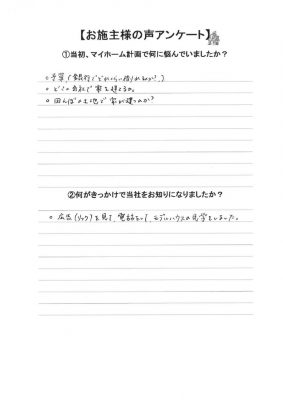 【お施主様の声アンケート】
①当初、マイホーム計画で何に悩んでいましたか？
○予算(銀行でどれくらい借りれるか？)
○どこの会社で家を建てるか。
○田んぼの土地で家が建つのか？
②何がきっかけで当社をお知りになりましたか？
○広告(リック)を見て、電話をして、モデルハウスの見学をしました。